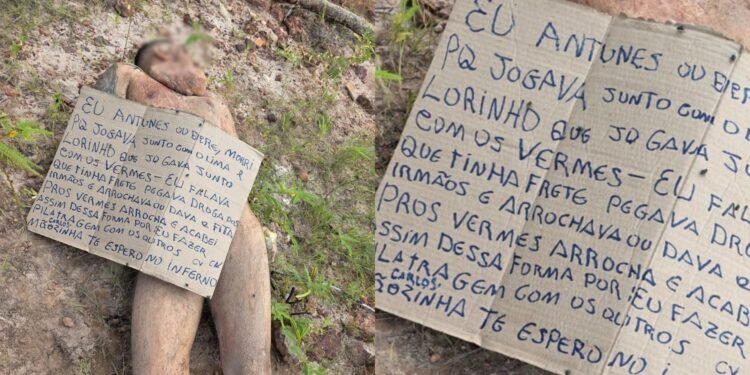 EU ANTUNES OU EVERE, MORRI
PQ JOGAVA JUNTO COM O LIMA E
LORINHO QUE JOGAVA JUNTO
COM OS VERMES - EU FALAVA
QUE TINHA FRETE PEGAVA DROGA DOS
IRMÃOS E ARROCHAVA OU DAVA A FITA
PROS VERMES ARROCHA E ACABEI
ASSIM DESSA FORMA POR EU FAZER
PILATRAGEM COM OS OUTROS
CARLOS
MÃOZINHA TE ESPERO NO INFERNO
EU ANTUNES OU EVERE
PQ JOGAVA JUNTO COM O
LORINHO QUE JOGAVA JU
COM OS VERMES - EU FALAVA
QUE TINHA FRETE PEGAVA DROGA
IRMÃOS E ARROCHAVA OU DAVA
PROS VERMES ARROCHA E ACAB
ASSIM DESSA FORMA POR EU FAZER
ILATRAGEM COM OS OUTROS
CARLOS
ÃOZINHA TE ESPERO NO